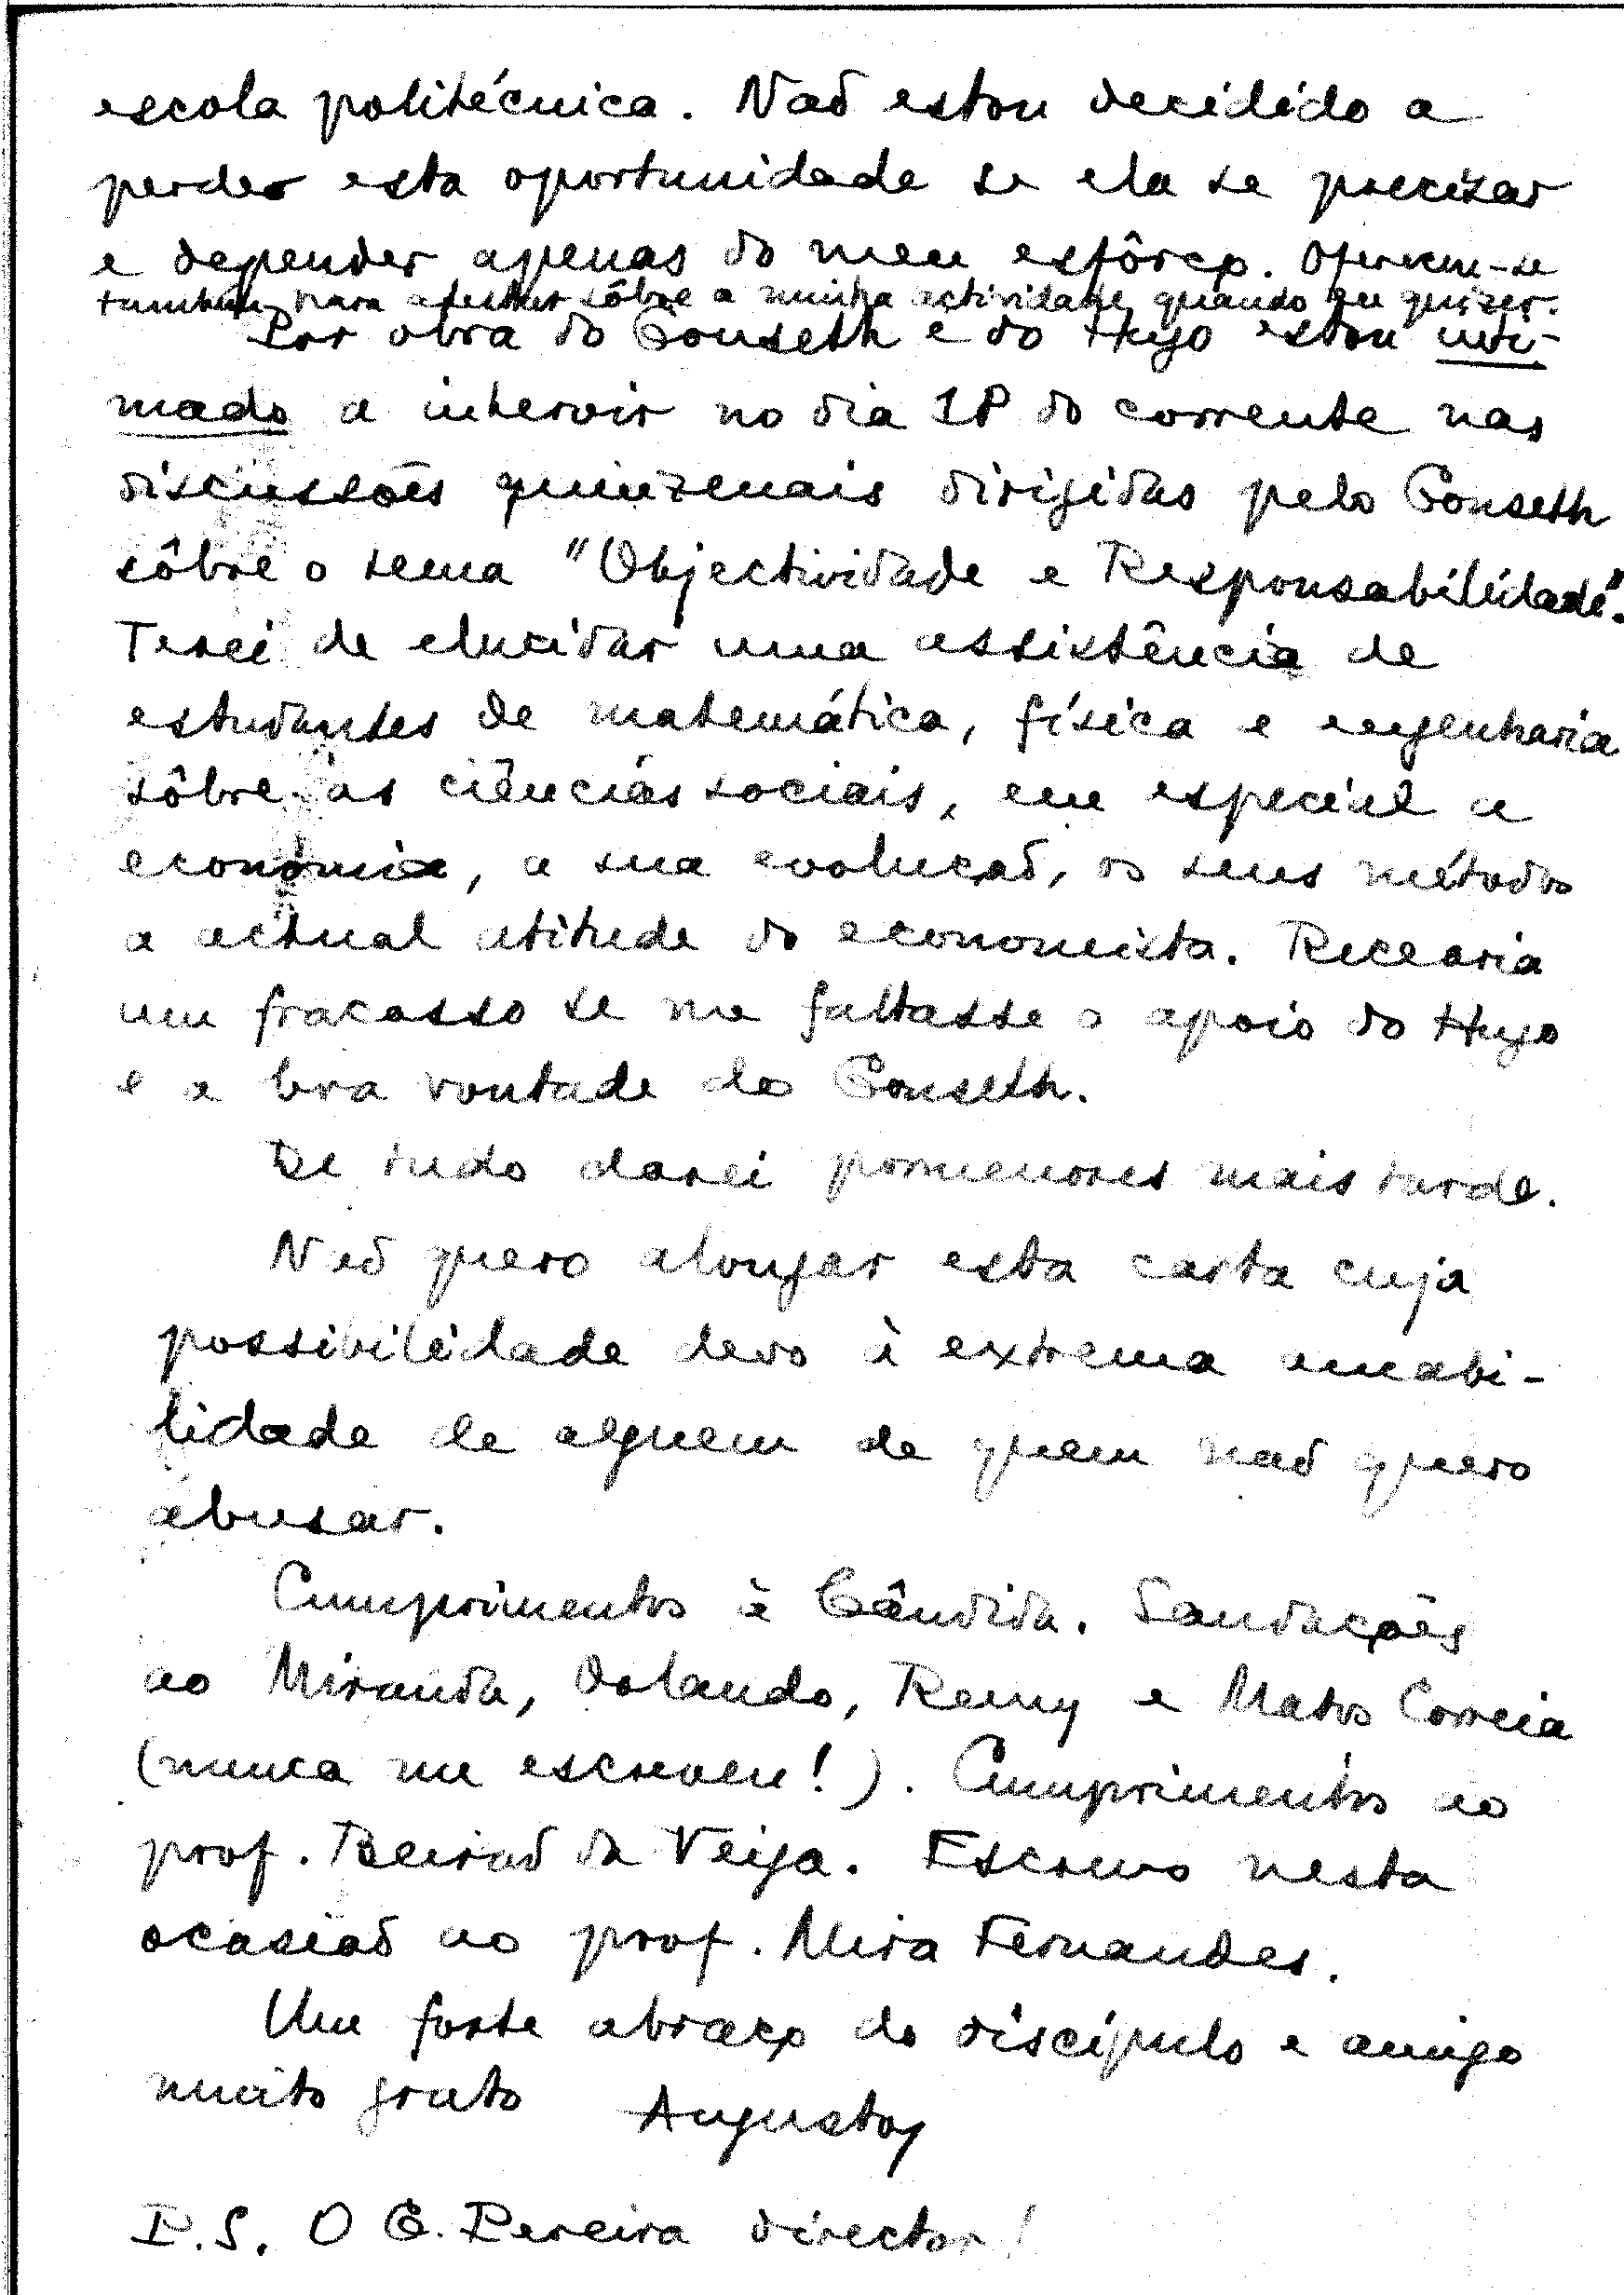 escola politécnica. Não estou decidido a
perder esta oportunidade se ela se precisar
e depender apenas do meu esfôrço. Ofereceu-se
também para atestar sôbre a minha actividade quando eu quizer.
Por obra do Gonseth e do Hugo estou inti-
mado a intervir no dia 18 do corrente nas
discussões quinzenais dirigidas pelo Gonseth
sôbre o tema "Objectividade e Responsabilidade".
Terei de elucidar uma assistência de
estudantes de matemática, física e engenharia
sôbre as ciências sociais, em especial a
economia, a sua evolução, os seus métodos
a actual atitude do economista. Recearia
um fracasso se me faltasse o apoio do Hugo
e a boa vontade do Gonseth.
De tudo darei pormenores mais tarde.
Não quero alongar esta carta cuja
possibilidade devo à extrema amabi-
lidade de alguem de quem não quero
abusar.
Cumprimentos à Cândida. Saudações
ao Miranda, Orlando, Remy e Matos Correia
(nunca me escreveu!). Cumprimentos ao
prof. Beirão da Veiga. Escrevo nesta
ocasião ao prof. Mira Fernandes.
Um forte abraço do discípulo e amigo
muito grato Augusto
P.S. O G. Pereira director!